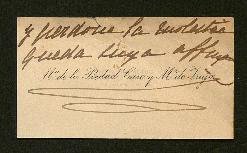 y perdona la molestia
queda suya affma
Ma. de la Piedad Caro y Mz. de Irujo